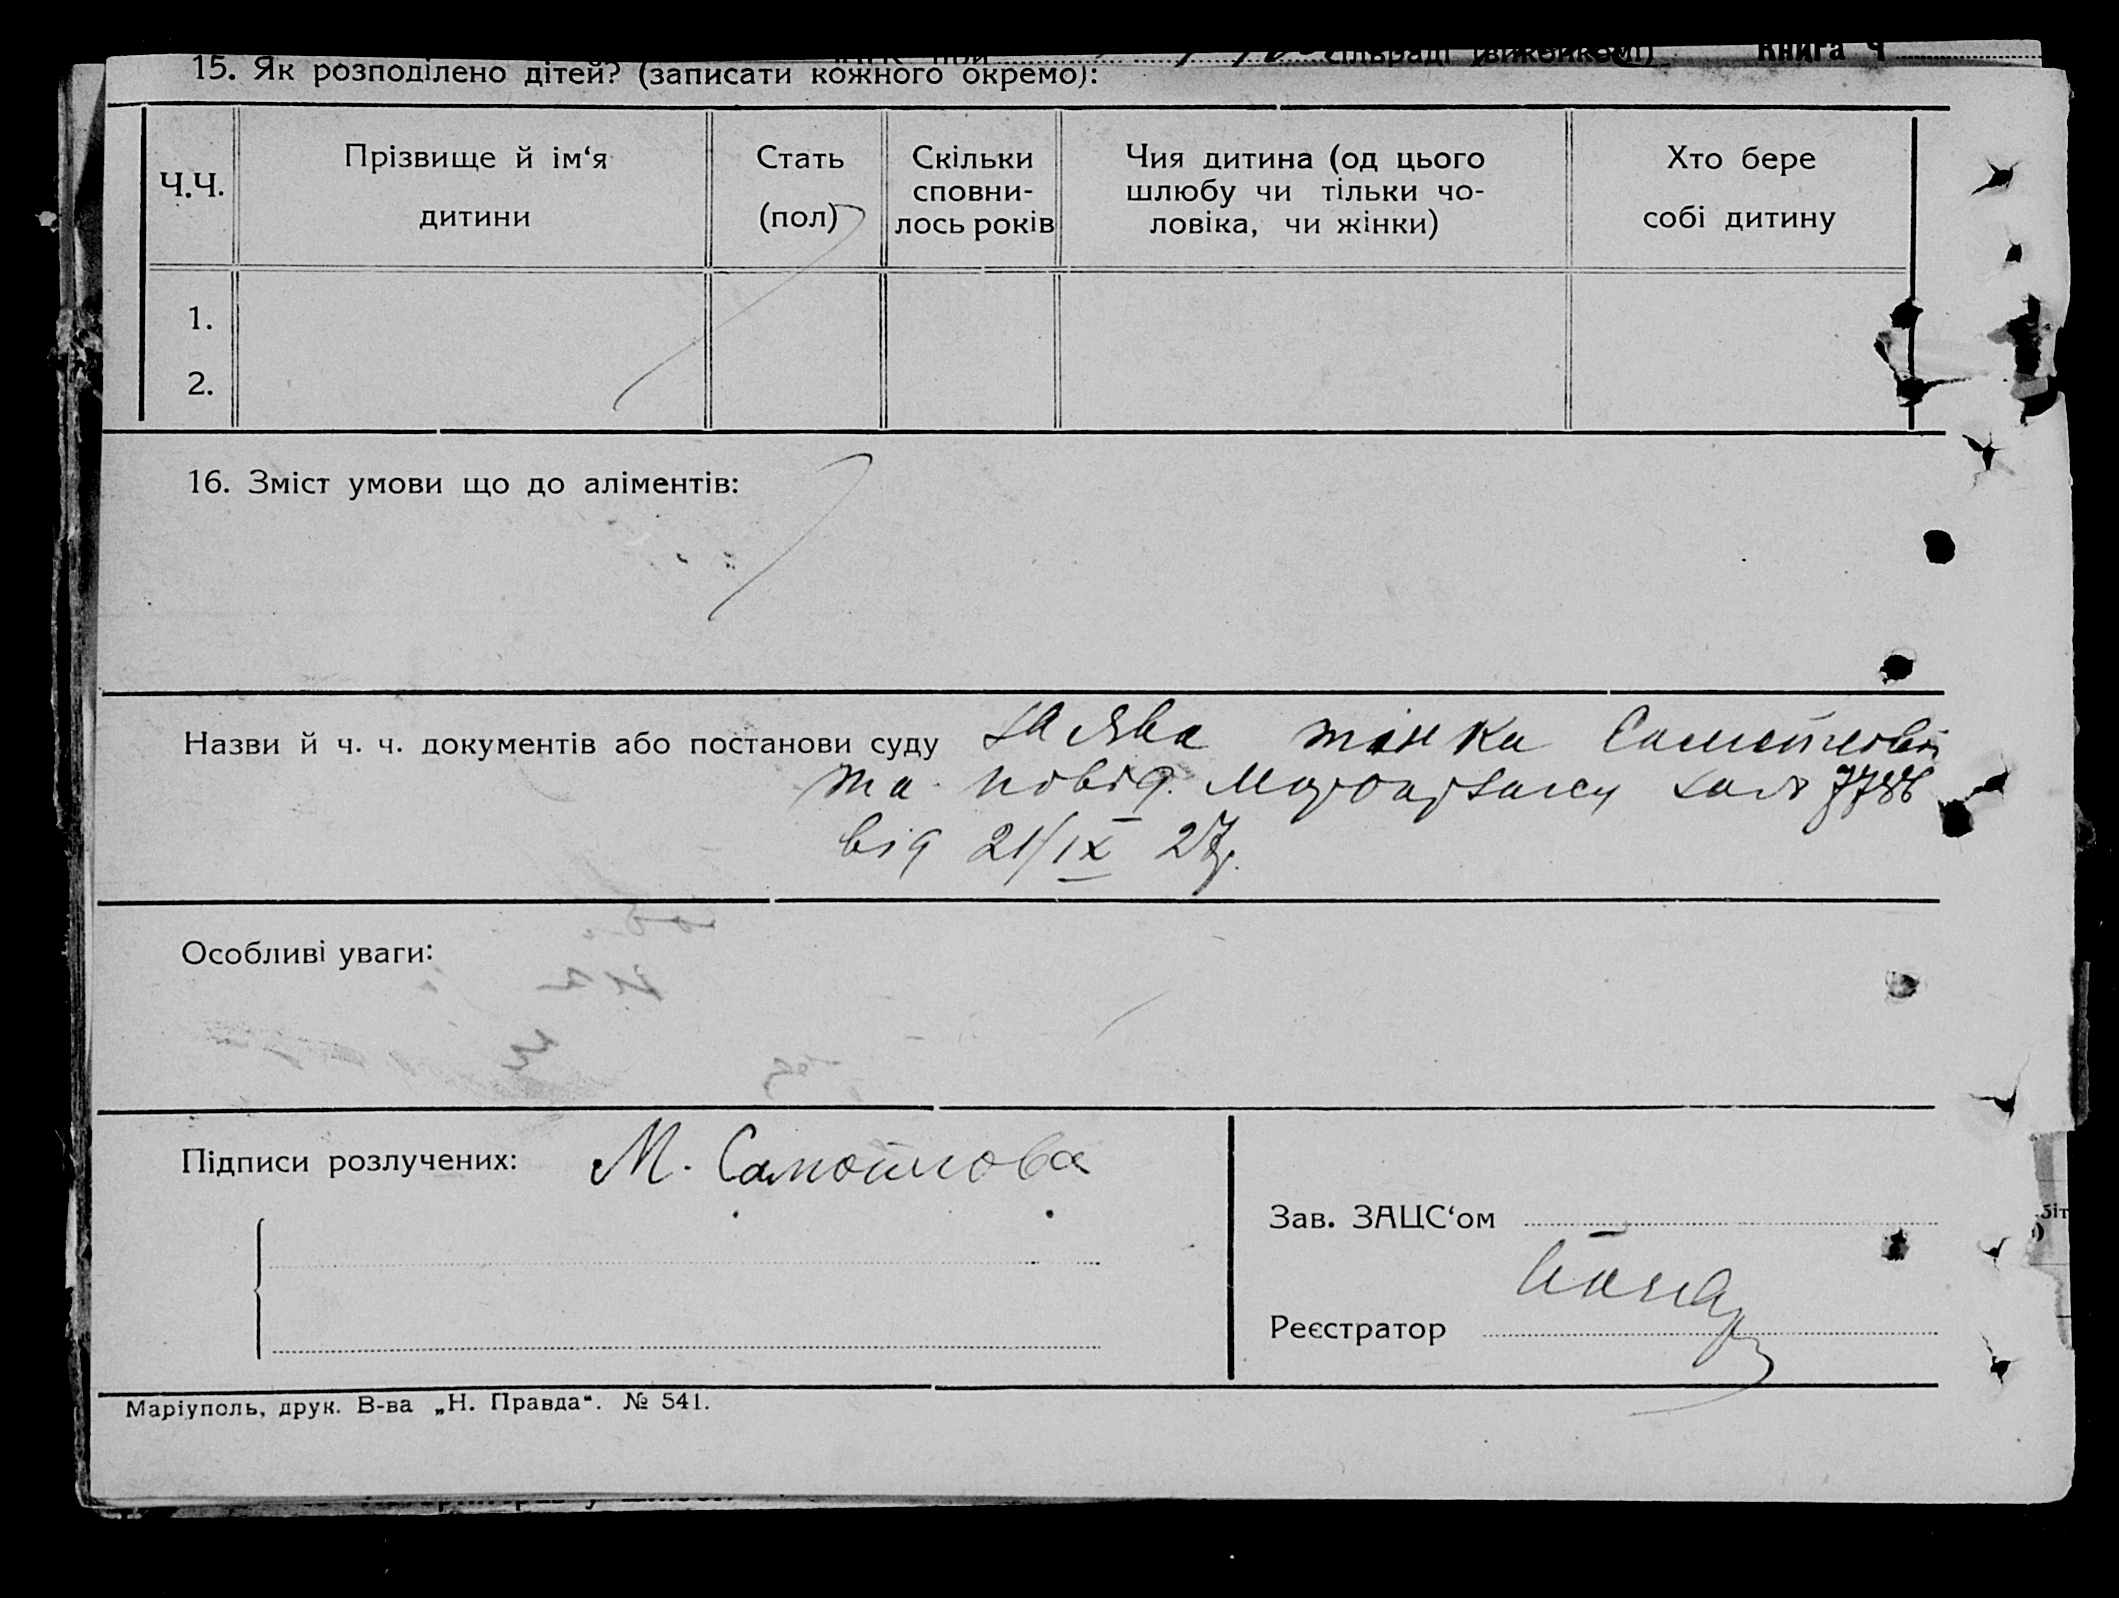 15. Як розподілено дітей? (записати кожного окремо):
Ч.Ч.
Прізвище й ім‘я дитини
Стать (пол)
Скільки сповни-
лось років
Чия дитина (од цього
шлюбу чи тільки чо-
ловіка, чи жінки)
Хто бере
собі дитину
1.
2.
16. Зміст умови що до аліментів:
Назви й ч. ч. документів або постанови суду заява жінки
та повід.
від 21/IX 27р.
Особливі уваги:
Підписи розлучених: М. Самойлова
Зав. ЗАЦС‘ом
Реєстратор
Маріуполь, друк. В-ва „Н. Правда“. № 541.